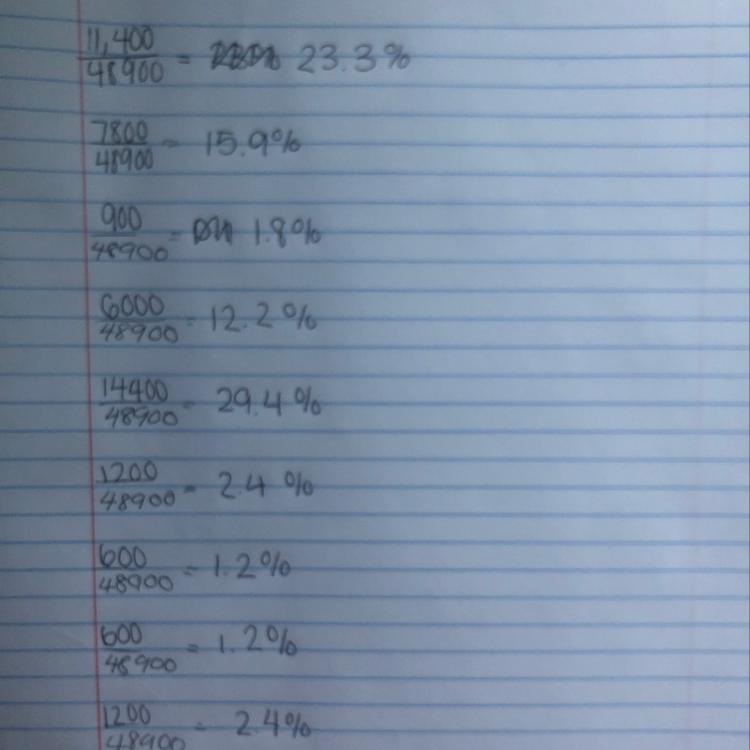 11,400/48900 = 23.3%
7800/48900 = 15.9%
900/48900 = 1.8%
6000/48900 = 12.2%
14400/48900 = 29.4%
1200/48900 = 2.4%
600/48900 = 1.2%
600/48900 = 1.2%
1200/48900 = 2.4%